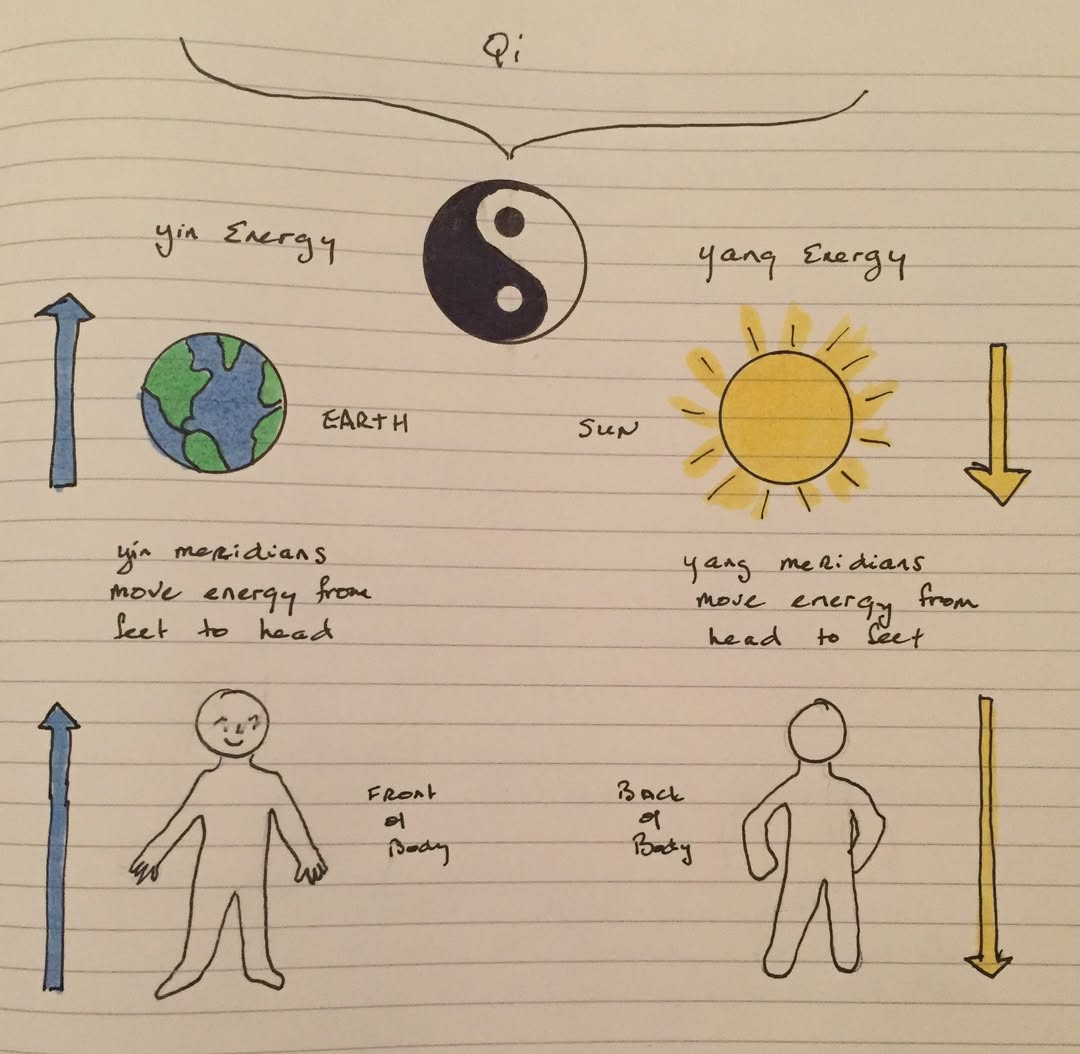 Qi
yin Energy
yang Energy
EARTH
SUN
yin meridians
move energy from
feet to head
yang meridians
move energy from
head to feet
FRONT
of
Body
BACK
of
Body